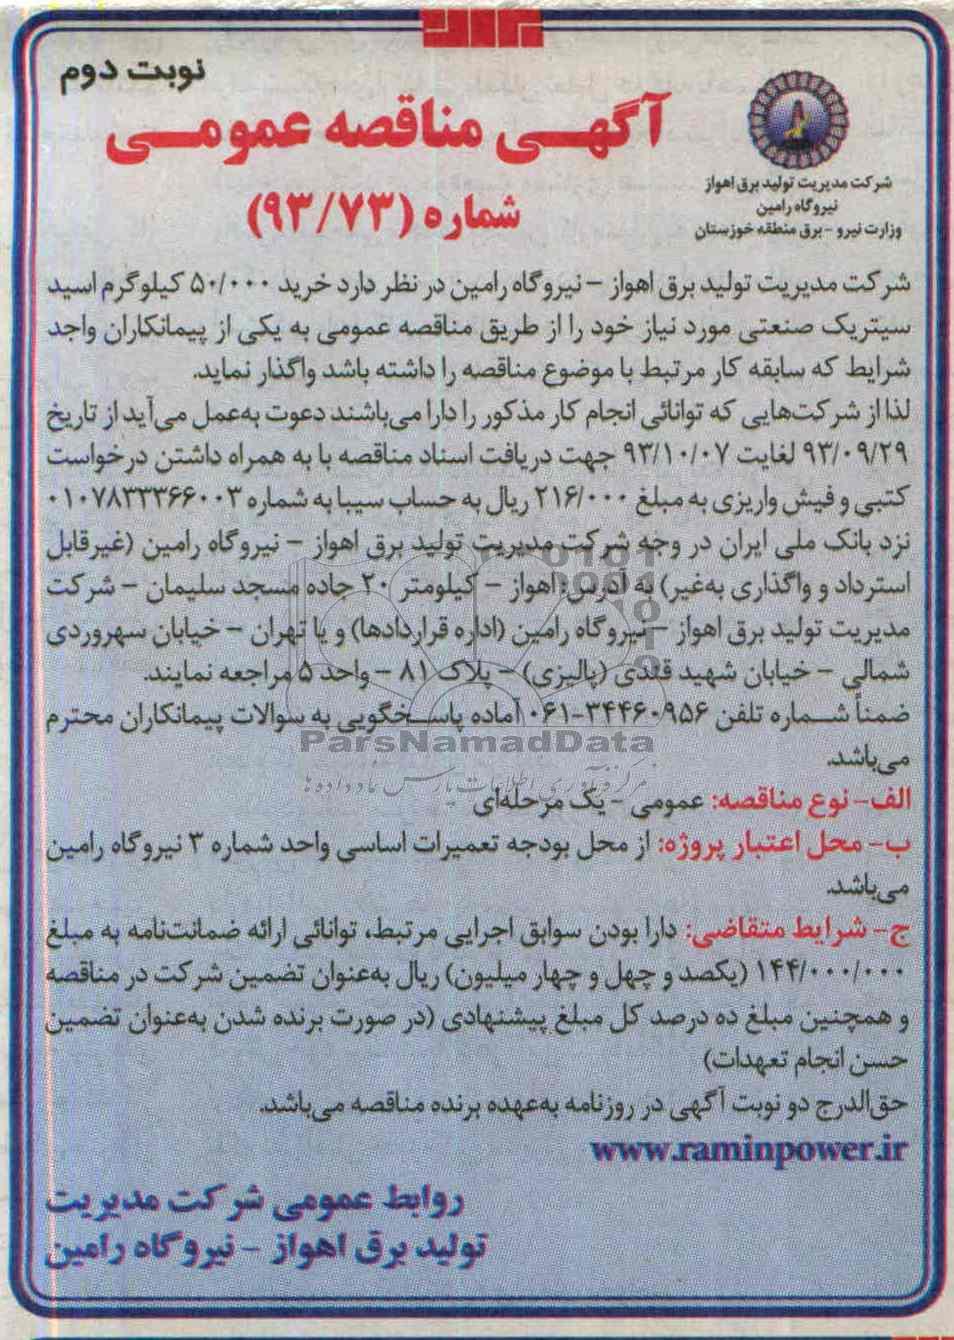 نوبت دوم
آگهی مناقصه عمومی
شماره (۹۳/۷۳)
شرکت مدیریت تولید برق اهواز
نیروگاه رامین
وزارت نیرو - برق منطقه خوزستان
شرکت مدیریت تولید برق اهواز – نیروگاه رامین در نظر دارد خرید ۵۰/۰۰۰ کیلوگرم اسید
سیتریک صنعتی مورد نیاز خود را از طریق مناقصه عمومی به یکی از پیمانکاران واجد
شرایط که سابقه کار مرتبط با موضوع مناقصه را داشته باشد واگذار نماید.
لذا از شرکت‌هایی که توانائی انجام کار مذکور را دارا می‌باشند دعوت به‌عمل می‌آید از تاریخ
۹۳/۰۹/۲۹ لغایت ۹۳/۱۰/۰۷ جهت دریافت اسناد مناقصه با به همراه داشتن درخواست
کتبی و فیش واریزی به مبلغ ۲۱۶/۰۰۰ ریال به حساب سیبا به شماره ۰۱۰۷۸۳۳۳۶۶۰۰۳
نزد بانک ملی ایران در وجه شرکت مدیریت تولید برق اهواز – نیروگاه رامین (غیرقابل
استرداد و واگذاری به‌غیر) به آدرس: اهواز – کیلومتر ۲۰ جاده مسجد سلیمان – شرکت
مدیریت تولید برق اهواز – نیروگاه رامین (اداره قراردادها) و یا تهران – خیابان سهروردی
شمالی – خیابان شهید قندی (پالیزی) – پلاک ۸۱ – واحد ۵ مراجعه نمایند.
ضمناً شماره تلفن ۳۴۴۶۰۹۵۶-۰۶۱ آماده پاسخگویی به سوالات پیمانکاران محترم
می‌باشد.
ParsNamadData
مرکز فرآوری اطلاعات پارس نماد داده ها
الف- نوع مناقصه: عمومی – یک مرحله‌ای
ب- محل اعتبار پروژه: از محل بودجه تعمیرات اساسی واحد شماره ۳ نیروگاه رامین
می‌باشد.
ج- شرایط متقاضی: دارا بودن سوابق اجرایی مرتبط، توانائی ارائه ضمانت‌نامه به مبلغ
۱۴۴/۰۰۰/۰۰۰ (یکصد و چهل و چهار میلیون) ریال به‌عنوان تضمین شرکت در مناقصه
و همچنین مبلغ ده درصد کل مبلغ پیشنهادی (در صورت برنده شدن به‌عنوان تضمین
حسن انجام تعهدات)
حق‌الدرج دو نوبت آگهی در روزنامه به‌عهده برنده مناقصه می‌باشد.
www.raminpower.ir
روابط عمومی شرکت مدیریت
تولید برق اهواز – نیروگاه رامین